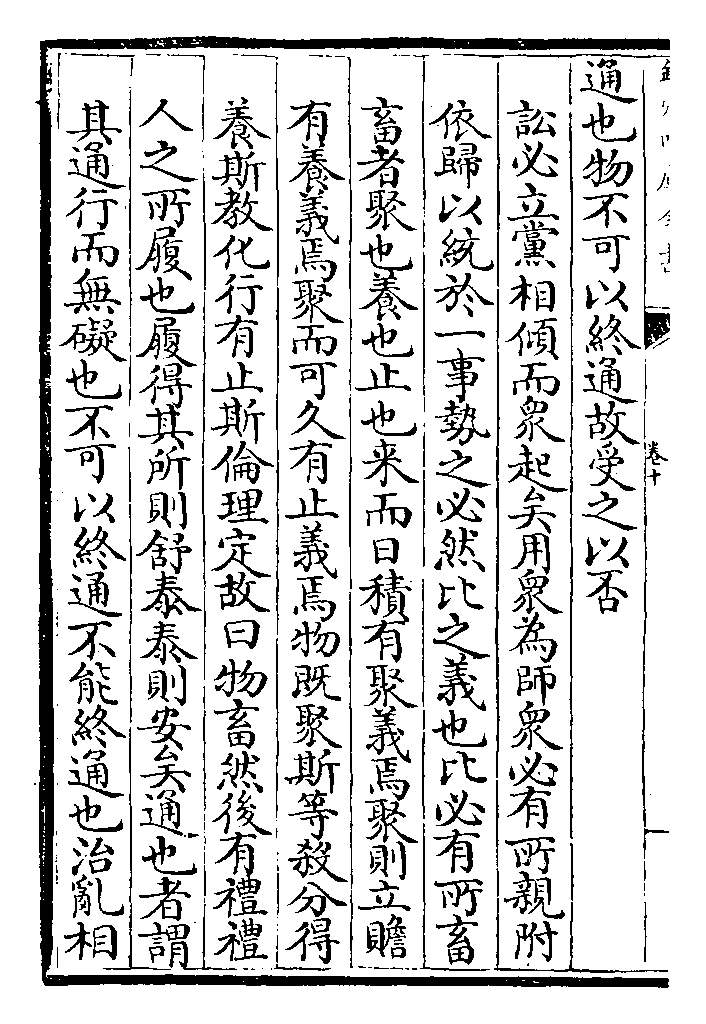 通也物不可以終通故受之以否
訟必立黨相傾而衆起矣用衆為師衆必有所親附
依歸以統於一事勢之必然比之義也比必有所畜
畜者聚也養也止也来而日積有聚義焉聚則立贍
有養義焉聚而可久有止義焉物既聚斯等殺分得
養斯教化行有止斯倫理定故曰物畜然後有禮禮
人之所履也履得其所則舒泰泰則安矣通也者謂
其通行而無礙也不可以終通不能終通也治亂相
卷十